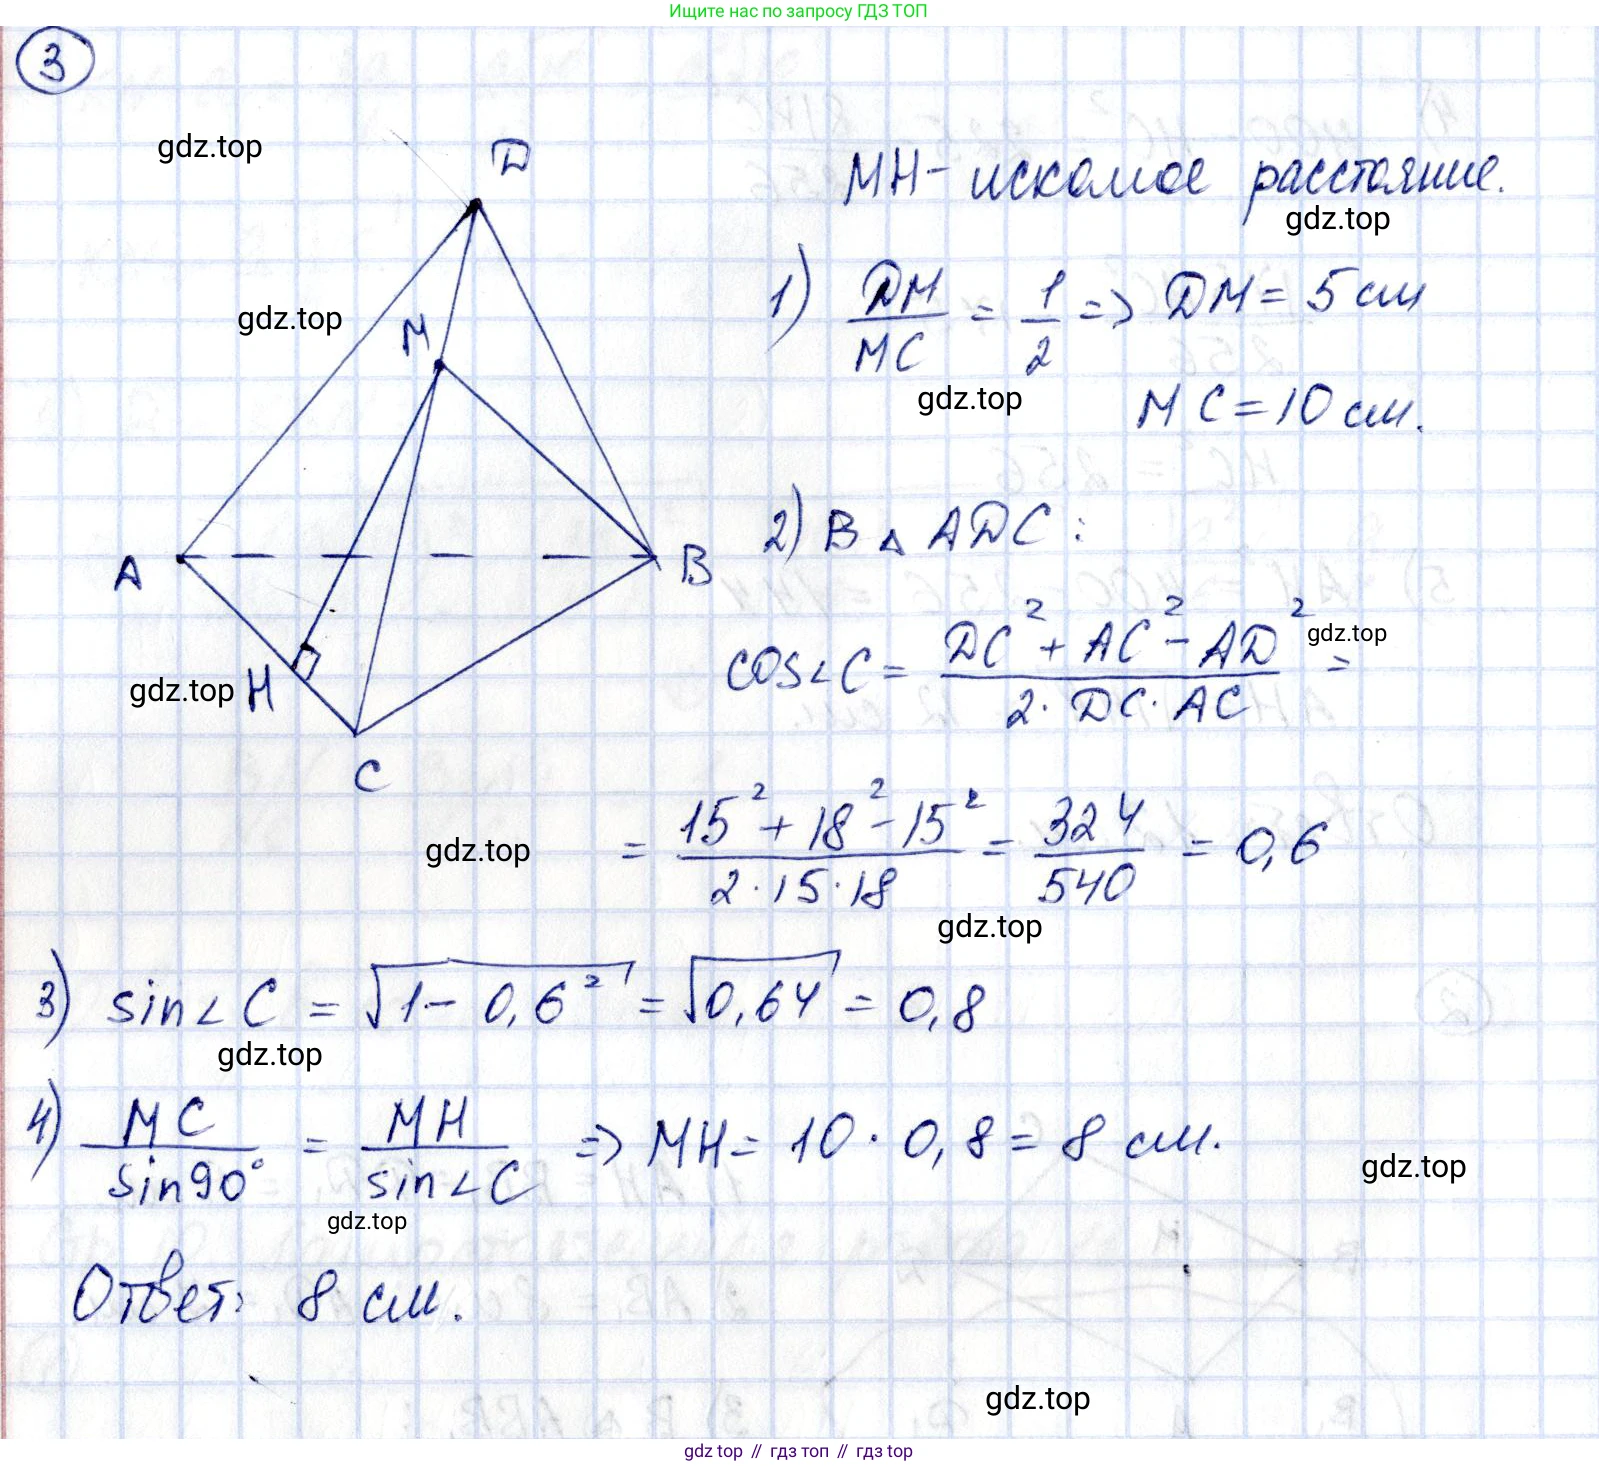 Ищите нас по запросу ГДЗ ТОП
3
gdz.top
D
MH - искомое расстояние.
gdz.top
1) DM/MC = 1/2 => DM = 5 см
gdz.top
M
gdz.top
MC = 10 см.
2) В △ ADC:
A
B
cos∠C = (DC² + AC² - AD²)/(2 · DC · AC) =
gdz.top
gdz.top
H
C
= (15² + 18² - 15²)/(2 · 15 · 18) = 324/540 = 0,6
gdz.top
gdz.top
3) sin∠C = √(1 - 0,6²) = √0,64 = 0,8
gdz.top
4) MC/sin90° = MH/sin∠C => MH = 10 · 0,8 = 8 см.
gdz.top
gdz.top
Ответ: 8 см.
gdz.top
gdz top // гдз топ // gdz top